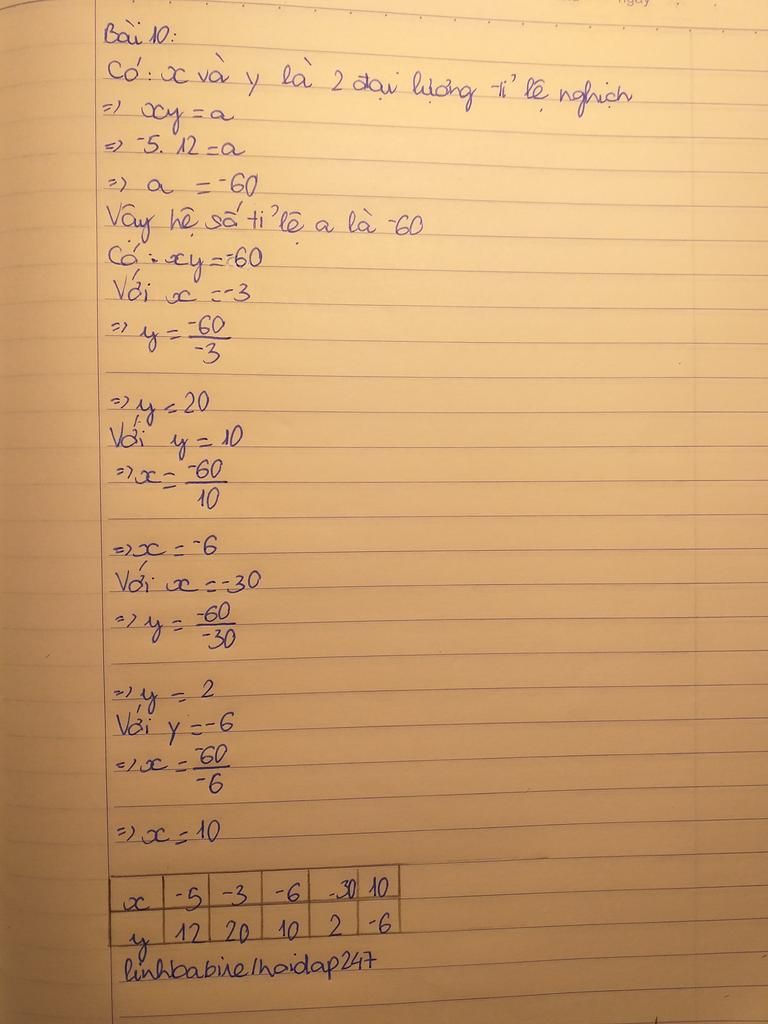 Bài 10:
Có: x và y là 2 đại lượng tỉ lệ nghịch
=> xy = a
=> -5. 12 = a
=> a = -60
Vậy hệ số tỉ lệ a là -60
Có: xy = -60
Với x = -3
=> y = -60/-3
=> y = 20
Với y = 10
=> x = -60/10
=> x = -6
Với x = -30
=> y = -60/-30
=> y = 2
Với y = -6
=> x = -60/-6
=> x = 10
x -5 -3 -6 -30 10
y 12 20 10 2 -6
linhbabire/hoidap247